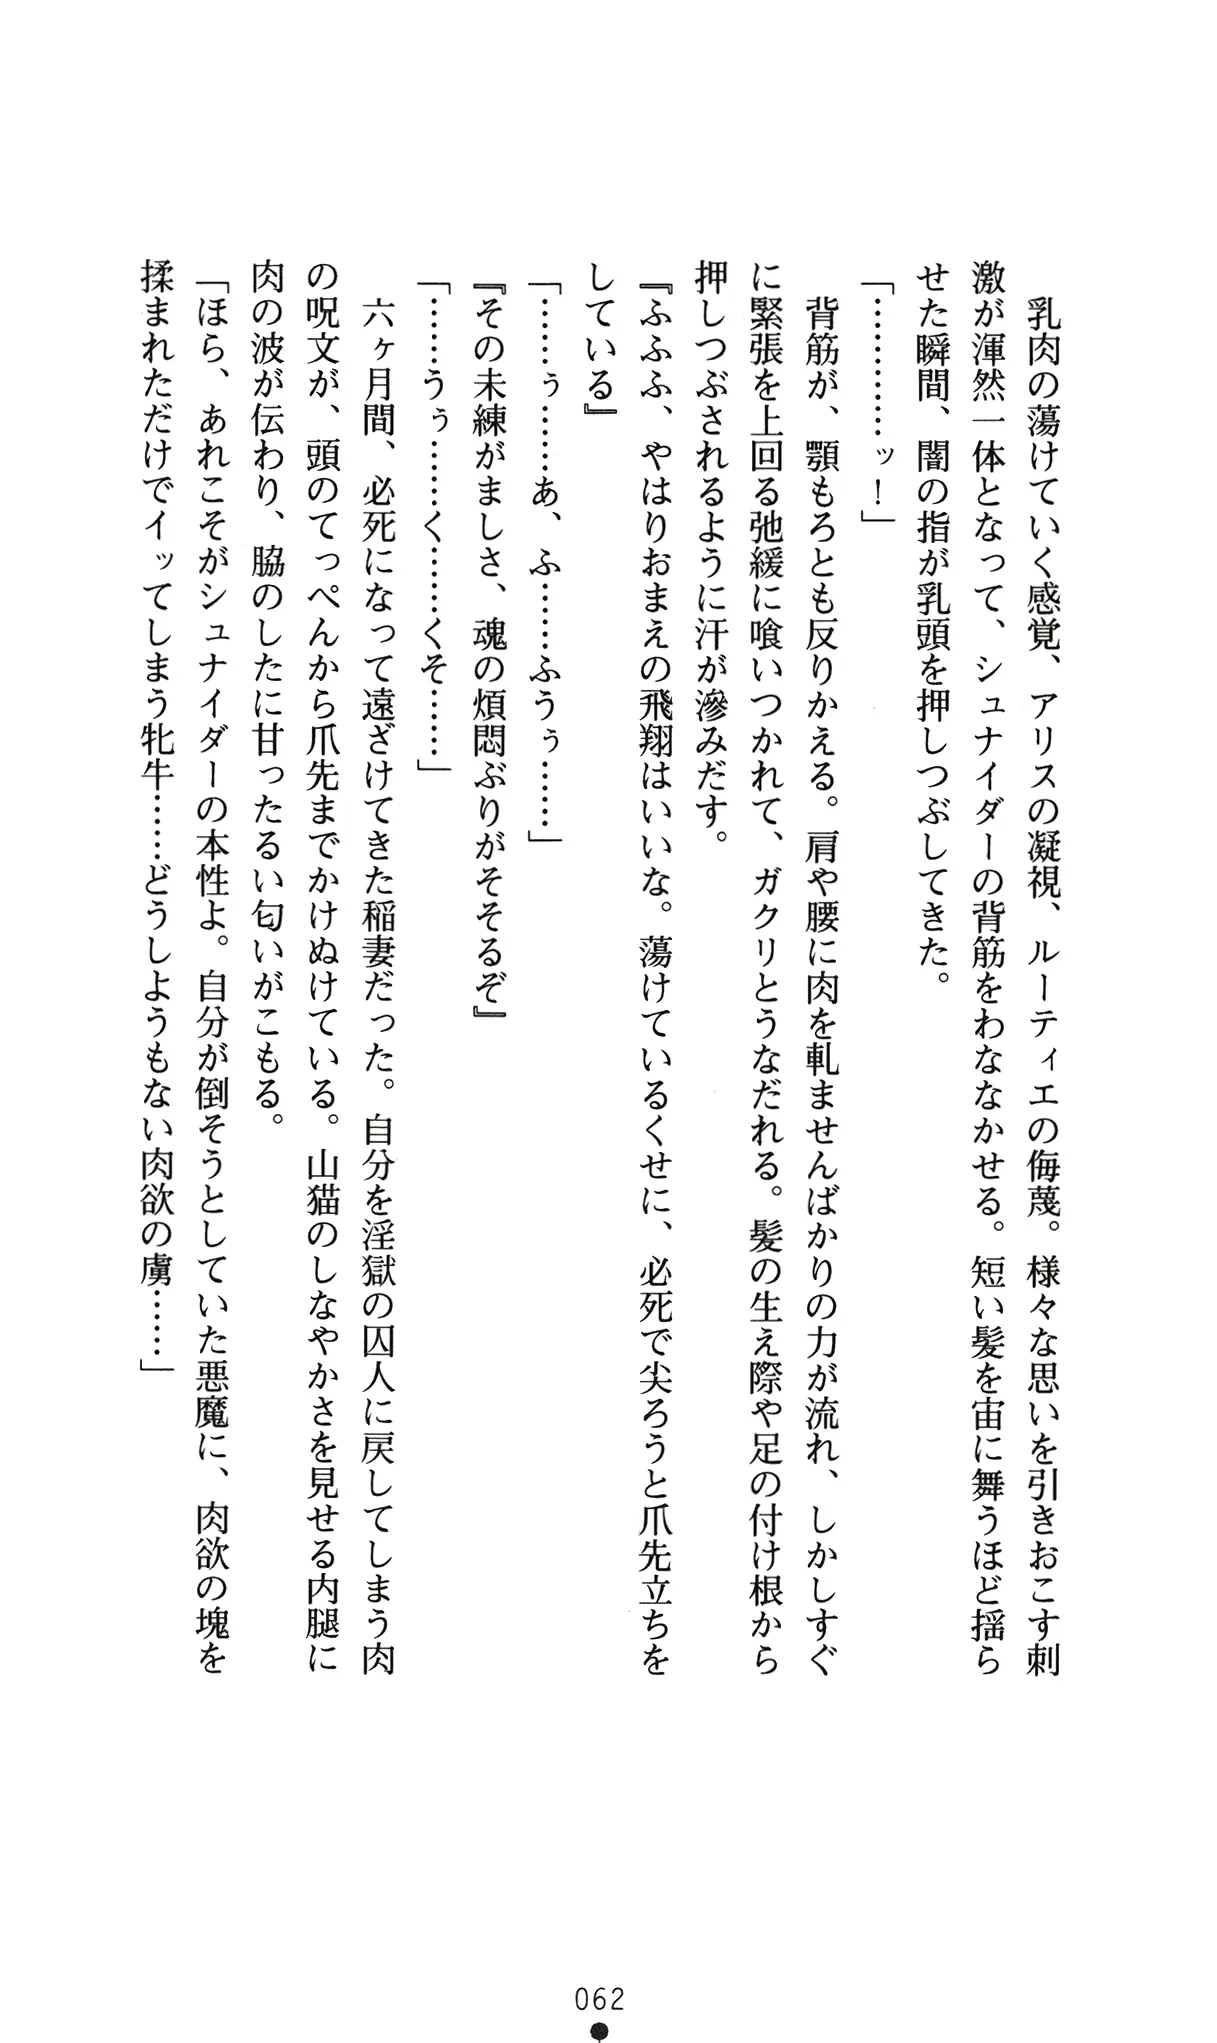 乳肉の蕩けていく感覚、アリスの凝視、ルーティエの侮蔑。様々な思いを引きおこす刺
激が渾然一体となって、シュナイダーの背筋をわななかせる。短い髪を宙に舞うほど揺ら
せた瞬間、闇の指が乳頭を押しつぶしてきた。
「…………ッ！」
　背筋が、顎もろとも反りかえる。肩や腰に肉を軋ませんばかりの力が流れ、しかしすぐ
に緊張を上回る弛緩に喰いつかれて、ガクリとうなだれる。髪の生え際や足の付け根から
押しつぶされるように汗が滲みだす。
『ふふふ、やはりおまえの飛翔はいいな。蕩けているくせに、必死で尖ろうと爪先立ちを
している』
「……ぅ……あ、ふ……ふうぅ……」
『その未練がましさ、魂の煩悶ぶりがそそるぞ』
「……うぅ……く……くそ……」
　六ヶ月間、必死になって遠ざけてきた稲妻だった。自分を淫獄の囚人に戻してしまう肉
の呪文が、頭のてっぺんから爪先までかけぬけている。山猫のしなやかさを見せる内腿に
肉の波が伝わり、脇のしたに甘ったるい匂いがこもる。
「ほら、あれこそがシュナイダーの本性よ。自分が倒そうとしていた悪魔に、肉欲の塊を
揉まれただけでイッてしまう牝牛……どうしようもない肉欲の虜……」
062